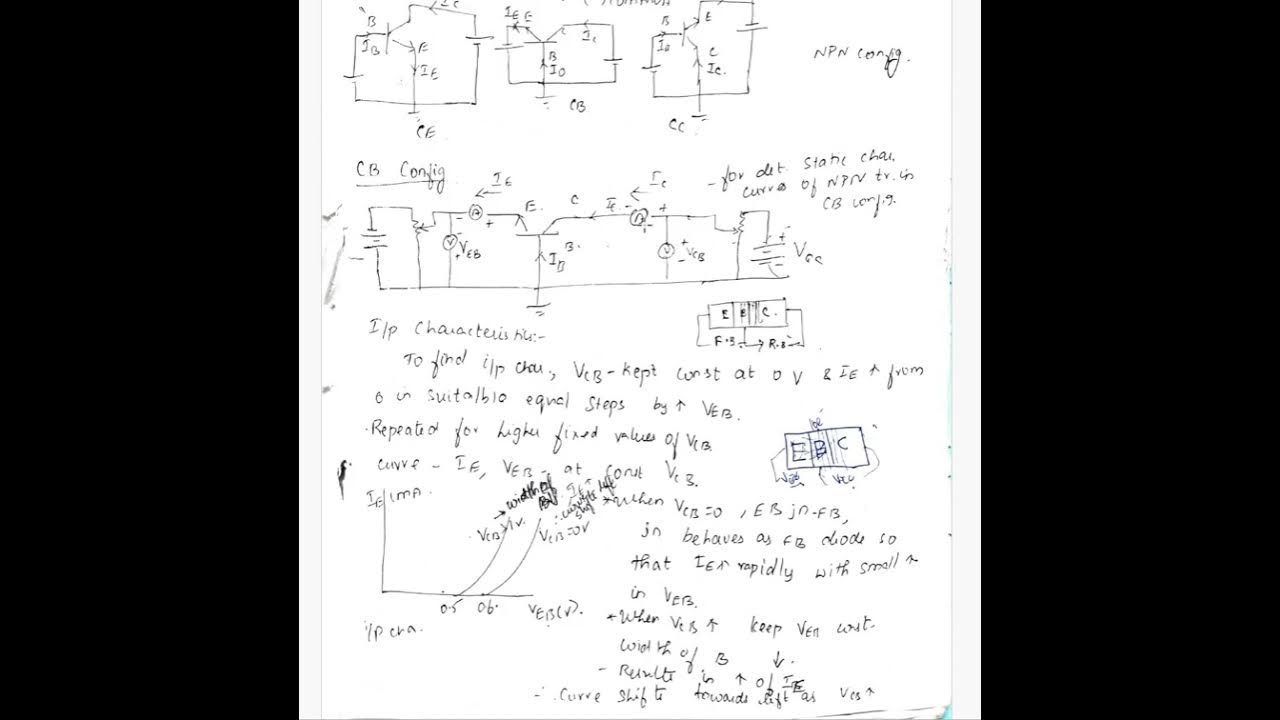 B
I_B
E
I_E
CE
I_E E
I_C
B
CB
B
E
C
I_C
CC
NPN Config.
CB Config
- for det. static cha.
curves of NPN tr. in
CB config.
I_E
I_C
E.
C
V_EB
I_B
B.
V_CB
V_CC
E B C.
F.B
R.B
I/p Characteristics:-
To find i/p char, V_CB - kept const at 0 V & I_E ↑ from
0 in suitable equal steps by ↑ V_EB.
. Repeated for higher fixed values of V_CB
curve - I_E, V_EB - at const V_CB.
E B C
I_E (mA.
→ width of
V_CB > 1V.
V_CB = 0V
0.5 0.6. V_EB (V).
i/p cha.
* When V_CB = 0, EB jn - FB,
jn behaves as FB diode so
that I_E ↑ rapidly with small ↑
in V_EB.
* When V_CB ↑ keep V_EB const.
width of B ↓.
- Results in ↑ of I_E
∴ Curve shifts towards left as V_CB ↑